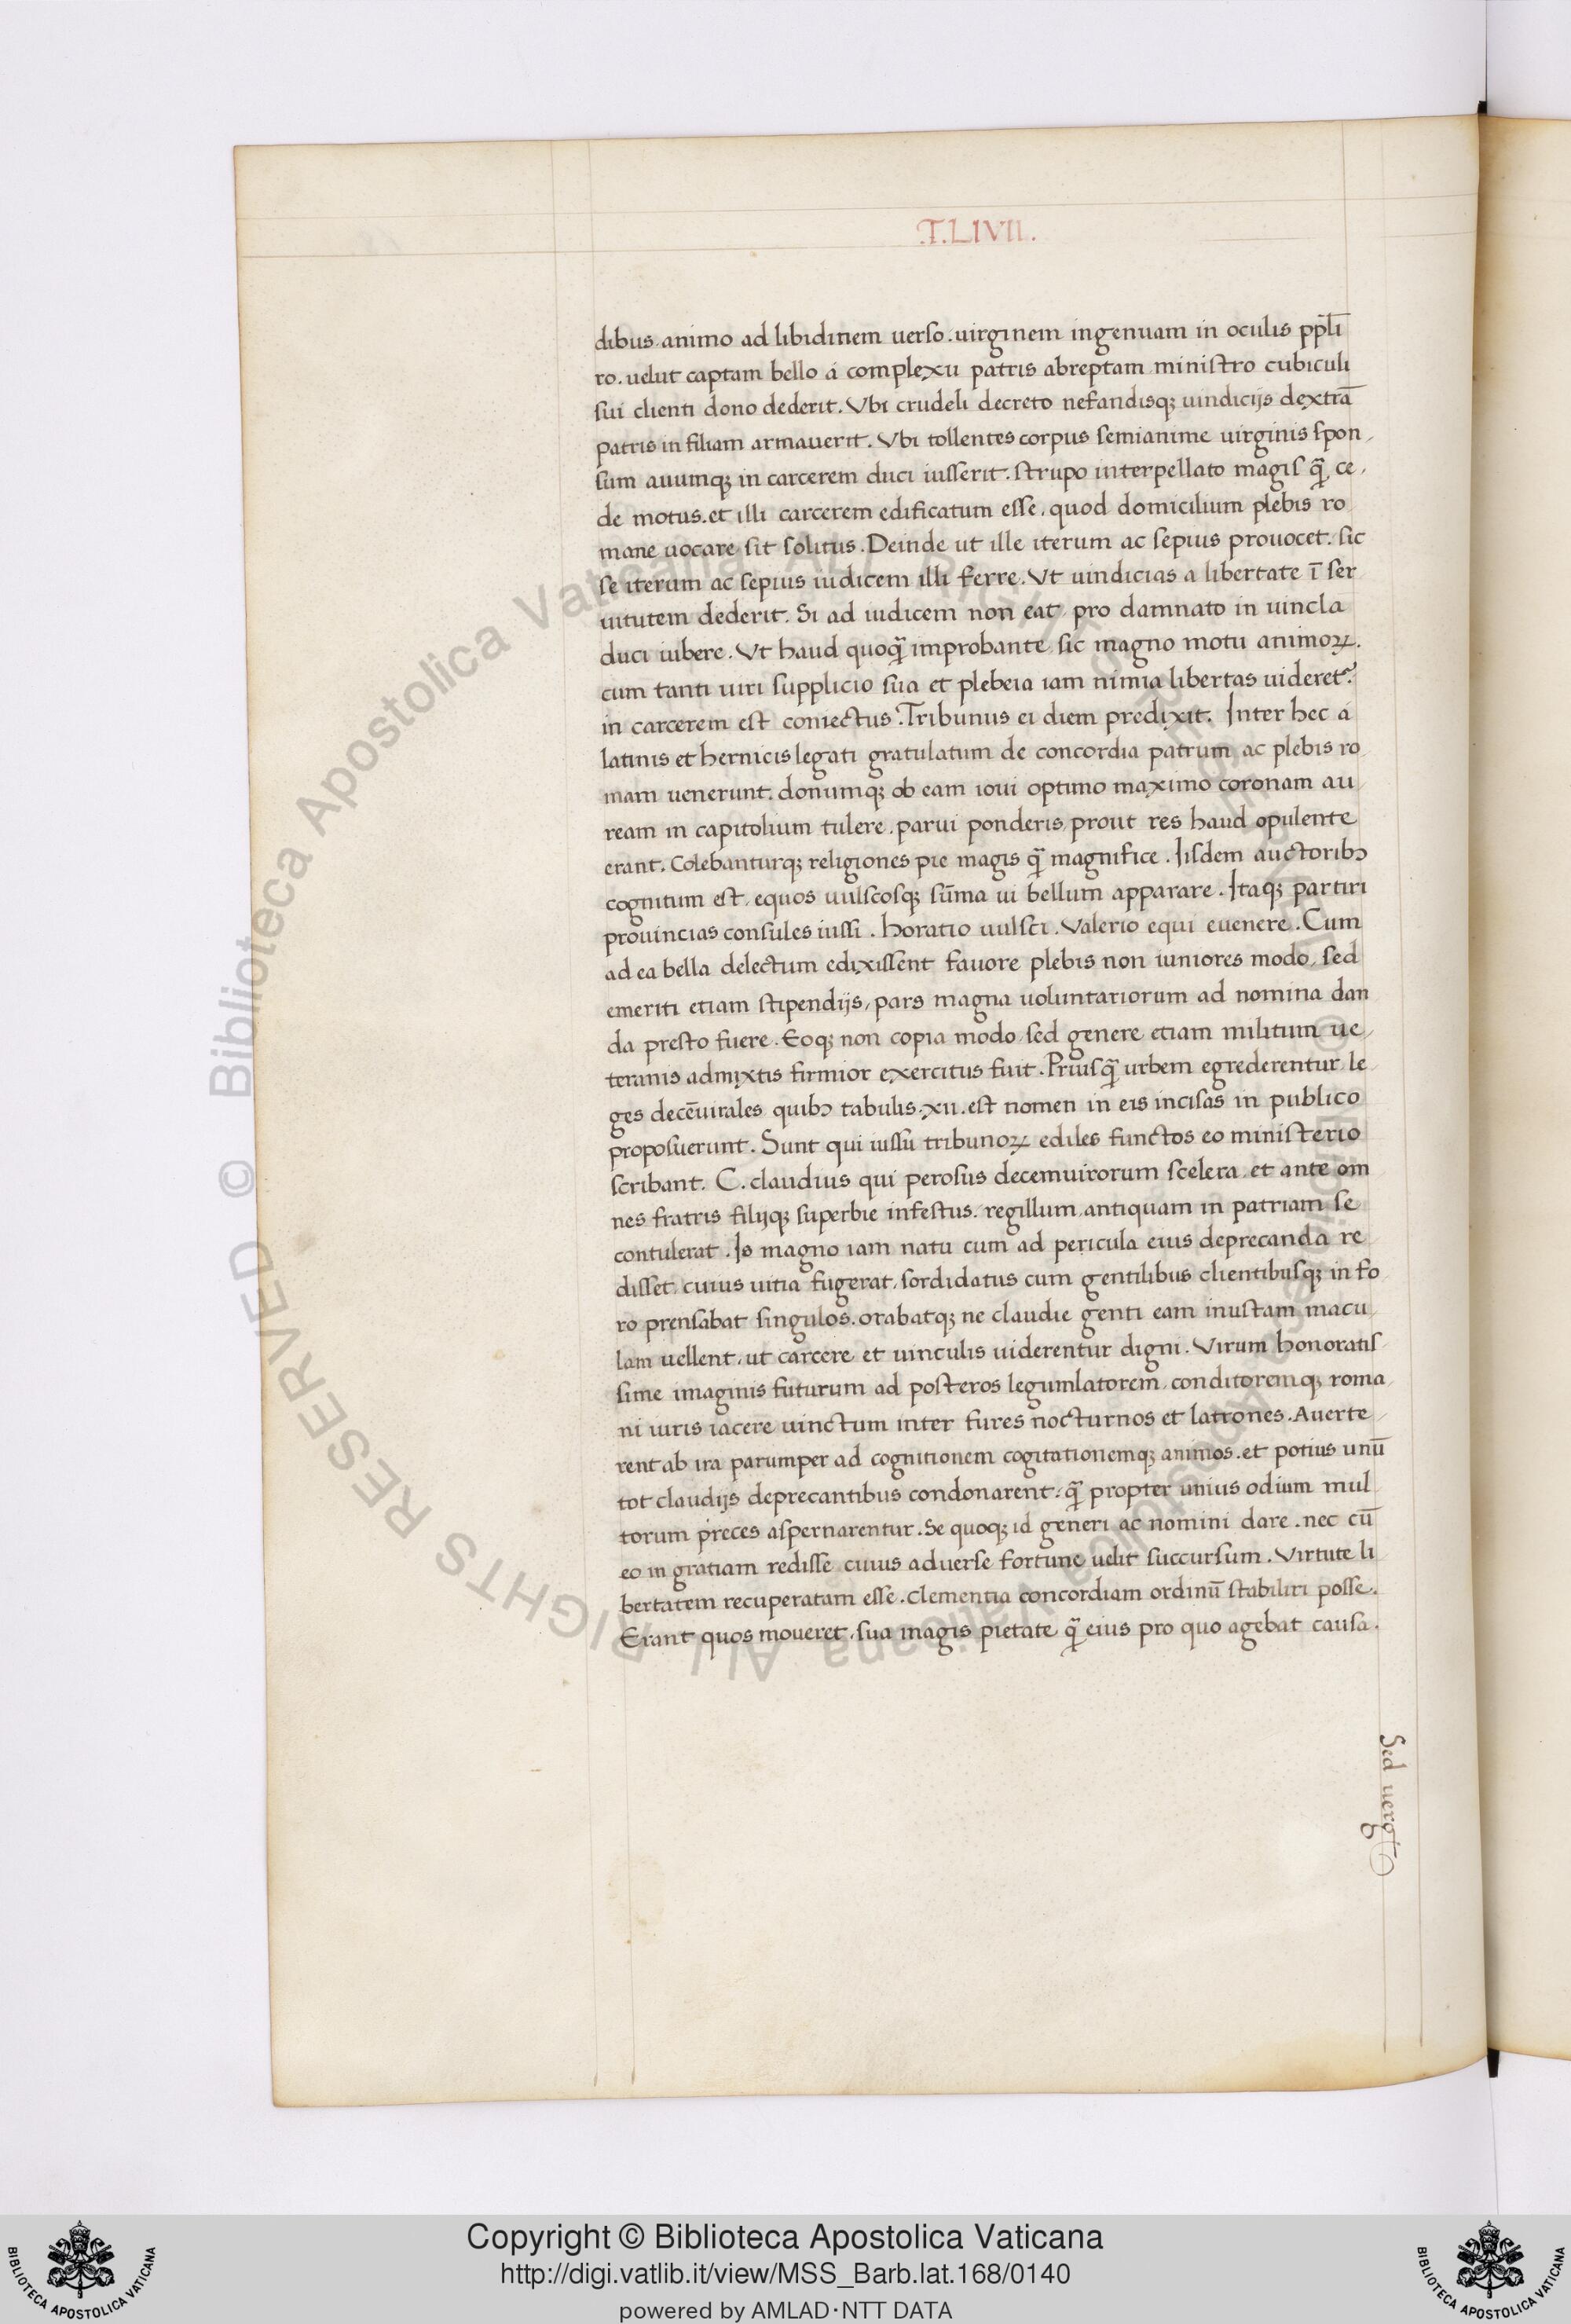 .T.LIVII.
dibus animo ad libidinem uerso. uirginem ingenuam in oculis pp̄li
ro. uelut captam bello a complexu patris abreptam ministro cubiculi
sui clienti dono dederit. Vbi crudeli decreto nefandisq; uindicijs dextrā
patris in filiam armauerit. Vbi tollentes corpus semianime uirginis spon
sum auumq; in carcerem duci iusserit. strupo interpellato magis q̄ ce
de motus. et illi carcerem edificatum esse, quod domicilium plebis ro
mane uocare sit solitus. Deinde ut ille iterum ac sepius prouocet. sic
se iterum ac sepius iudicem illi ferre. Vt uindicias a libertate ī ser
uitutem dederit. Si ad iudicem non eat, pro damnato in uincla
duci iubere. Vt haud quoq̄ improbante, sic magno motu animoꝝ.
cum tanti uiri supplicio sua et plebeia iam nimia libertas uideret᷑.
in carcerem est coniectus. Tribunus ei diem predixit. Inter hec á
latinis et hernicis legati gratulatum de concordia patrum ac plebis ro
mam uenerunt. donumq; ob eam ioui optimo maximo coronam au
ream in capitolium tulere. parui ponderis, prout res haud opulente
erant. Colebanturq; religiones pie magis q̄ magnifice. Iisdem auctorib
cognitum est, equos uulscosq; sūma ui bellum apparare. Itaq; partiri
prouincias consules iussi. horatio uulsci. Valerio equi euenere. Cum
ad ea bella delectum edixissent fauore plebis non iuniores modo, sed
emeriti etiam stipendijs, pars magna uoluntariorum ad nomina dan
da presto fuere. Eoq; non copia modo sed genere etiam militum ue
teranis admixtis firmior exercitus fuit. Priusq̄ urbem egrederentur le
ges decēuirales quibꝰ tabulis .xii. est nomen in eis incisas in publico
proposuerunt. Sunt qui iussu tribunoꝝ ediles functos eo ministerio
scribant. C. claudius qui perosus decemuirorum scelera, et ante om
nes fratris filijq; superbie infestus, regillum antiquam in patriam se
contulerat. Is magno iam natu cum ad pericula eius deprecanda re
disset, cuius uitia fugerat, sordidatus cum gentilibus clientibusq; in fo
ro prensabat singulos. orabatq; ne claudie genti eam inustam macu
lam uellent, ut carcere et uinculis uiderentur digni. Virum honoratis
sime imaginis futurum ad posteros legumlatorem conditoremq; roma
ni iuris iacere uinctum inter fures nocturnos et latrones. Auerte
rent ab ira parumper ad cognitionem cogitationemq; animos. et potius unū
tot claudijs deprecantibus condonarent, q̄ propter unius odium mul
torum preces aspernarentur. Se quoq; id generi ac nomini dare. nec cū
eo in gratiam redisse cuius aduerse fortune uelit succursum. Virtute li
bertatem recuperatam esse. clementia concordiam ordinū stabiliri posse.
Erant quos moueret, sua magis pietate q̄ eius pro quo agebat causa.
Sed uerg
© Biblioteca Apostolica Vaticana ALL RIGHTS RESERVED
Copyright © Biblioteca Apostolica Vaticana
http://digi.vatlib.it/view/MSS_Barb.lat.168/0140
powered by AMLAD·NTT DATA
BIBLIOTECA APOSTOLICA VATICANA
BIBLIOTECA APOSTOLICA VATICANA